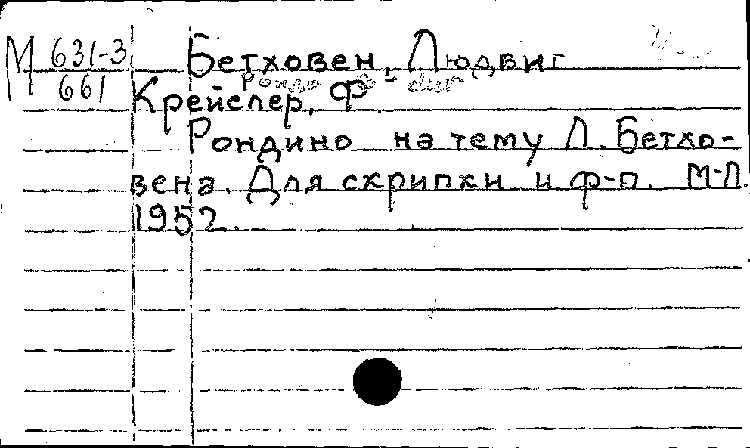 М 631-3
661
Бетховен, Людвиг
Рондо
Крейслер, Ф
Рондино на тему Л. Бетхо-
вена. Для скрипки и ф-п. М-Л.
1952.